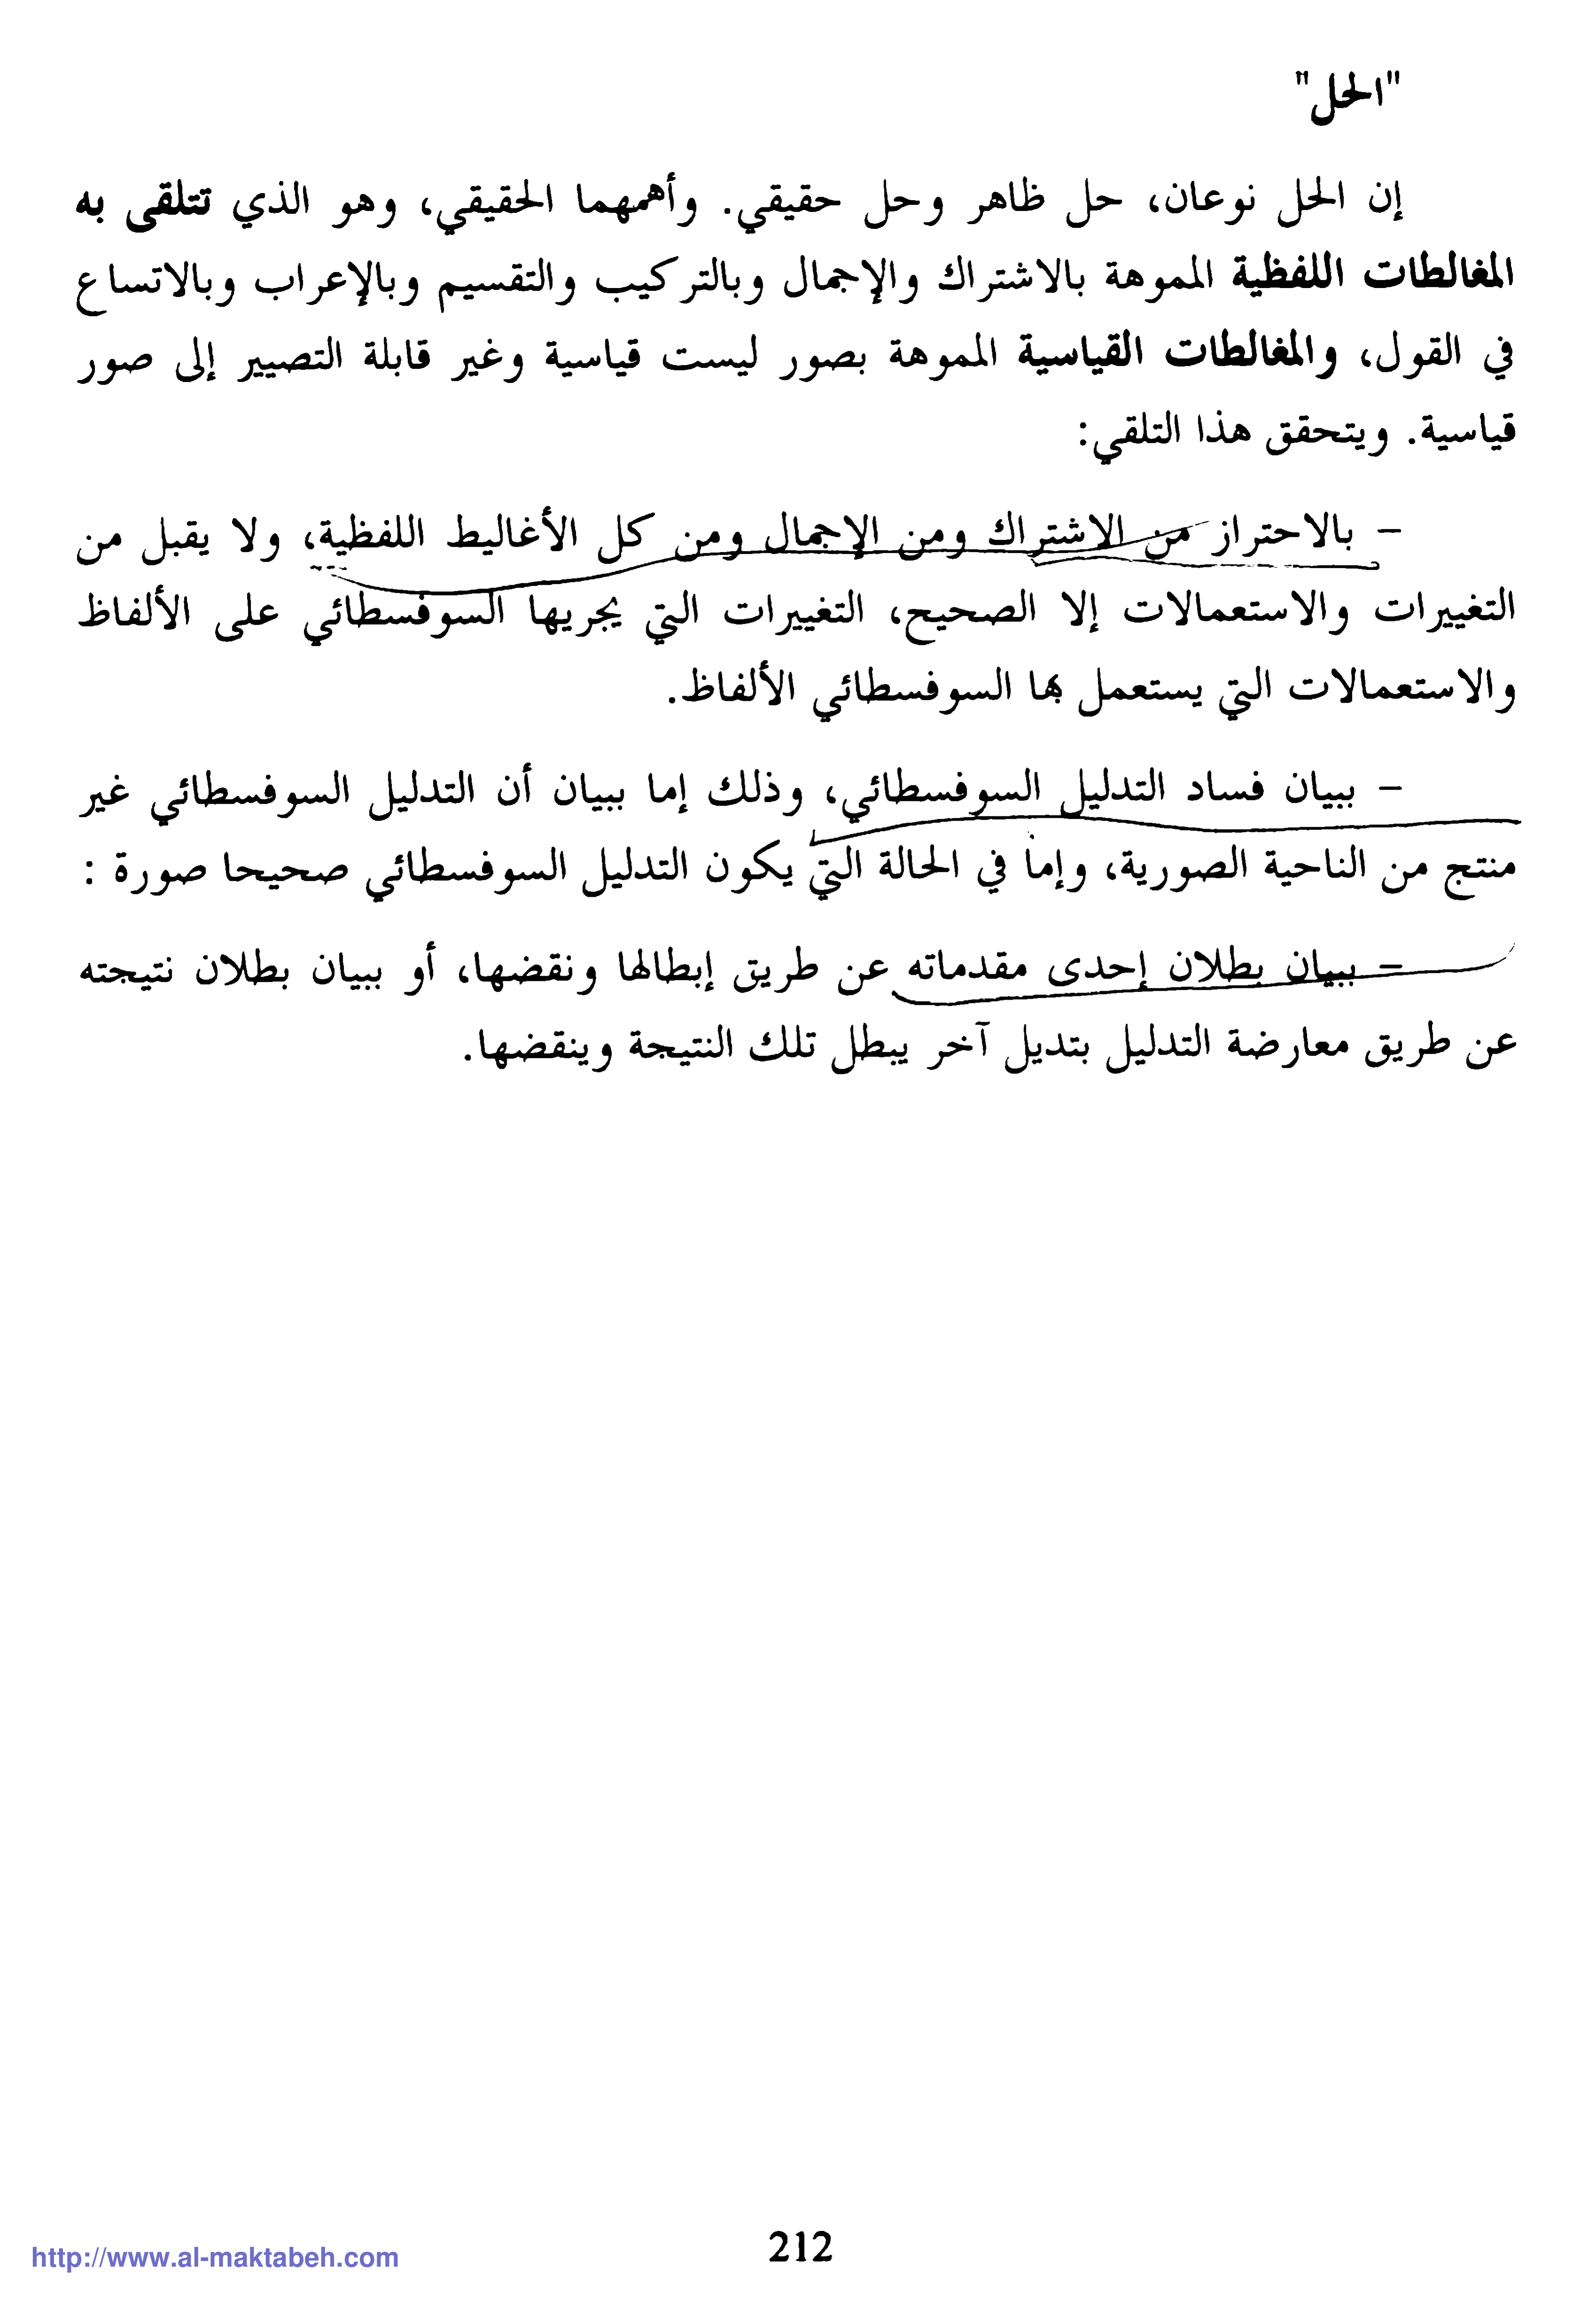 "الحل"
إن الحل نوعان، حل ظاهر وحل حقيقي. وأهمهما الحقيقي، وهو الذي تتلقى به
المغالطات اللفظية المموهة بالاشتراك والإجمال وبالتركيب والتقسيم وبالإعراب وبالاتساع
في القول، والمغالطات القياسية المموهة بصور ليست قياسية وغير قابلة التصيير إلى صور
قياسية. ويتحقق هذا التلقي:
– بالاحتراز من الاشتراك ومن الإجمال ومن كل الأغاليط اللفظية، ولا يقبل من
التغييرات والاستعمالات إلا الصحيح، التغييرات التي يجريها السوفسطائي على الألفاظ
والاستعمالات التي يستعمل بها السوفسطائي الألفاظ.
– ببيان فساد التدليل السوفسطائي، وذلك إما ببيان أن التدليل السوفسطائي غير
منتج من الناحية الصورية، وإما في الحالة التي يكون التدليل السوفسطائي صحيحا صورة :
– ببيان بطلان إحدى مقدماته عن طريق إبطالها ونقضها، أو ببيان بطلان نتيجته
عن طريق معارضة التدليل بتديل آخر يبطل تلك النتيجة وينقضها.
212
http://www.al-maktabeh.com